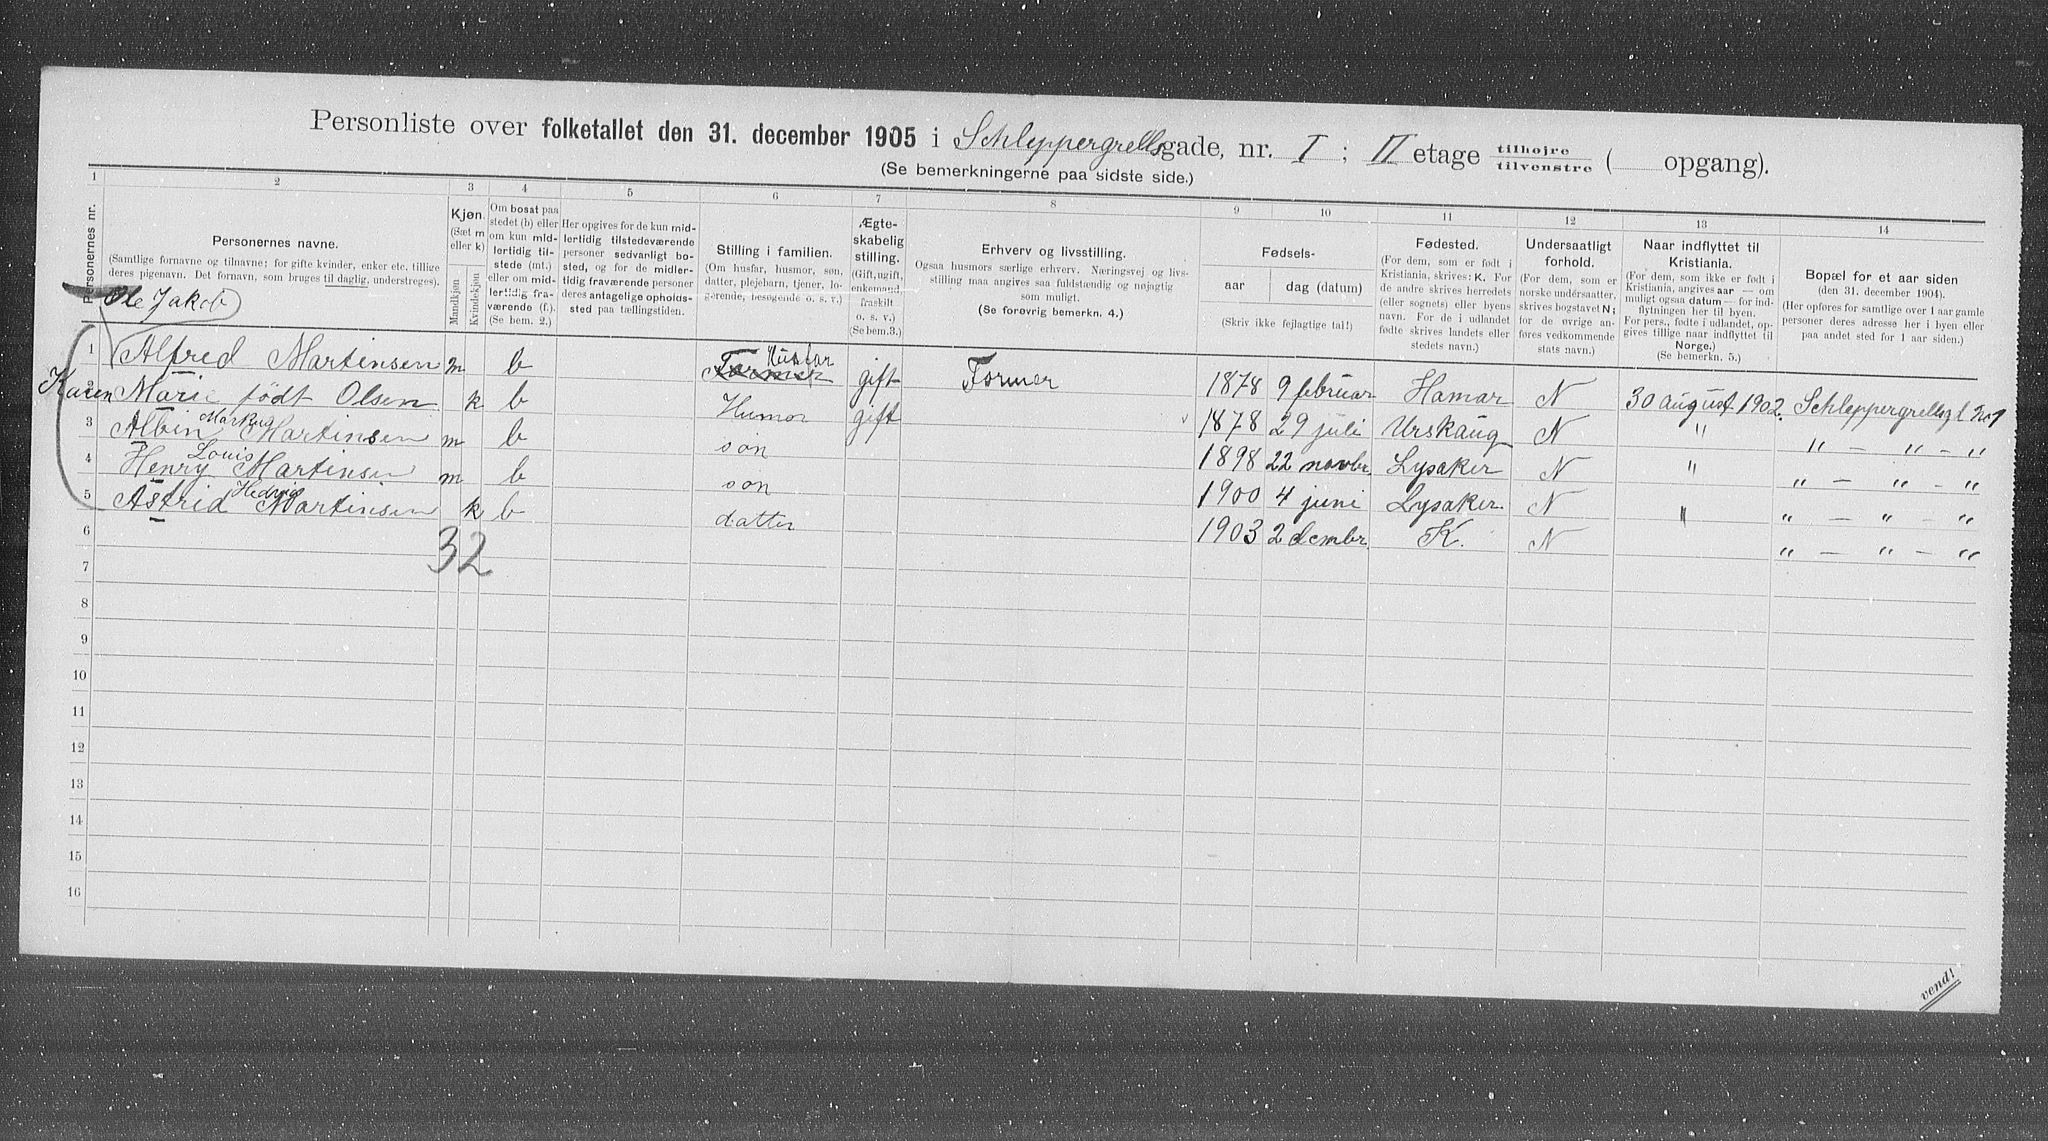 Personliste over folketallet den 31. december 1905 i Schleppergrellsgade, nr. I ; II etage tilhøjre tilvenstre ( opgang).
(Se bemerkningerne paa sidste side.)
1 2 3 4 5 6 7 8 9 10 11 12 13 14
Personernes nr.
Personernes navne.
(Samtlige fornavne og tilnavne; for gifte kvinder, enker etc. tillige
deres pigenavn. Det fornavn, som bruges til daglig, understreges).
Kjøn.
(Sæt m
eller k)
Mandkjøn
Kvindekjøn
Om bosat paa
stedet (b) eller
om kun mid-
lertidig til-
stede (mt.)
eller om mid-
lertidig fra-
værende (f.).
(Se bem. 2.)
Her opgives for de kun mid-
lertidig tilstedeværende
personer sedvanlig bo-
sted, og for de midler-
tidig fraværende personer
deres antagelige opholds-
sted paa tællingstiden.
Stilling i familien.
(Om husfar, husmor, søn,
datter, plejebarn, tjener, lo-
gerende, besøgende o. s. v.)
Ægte-
skabelig
stilling.
(Gift, ugift,
enkemand,
fraskilt
o. s. v.)
(Se bem. 3.)
Erhverv og livsstilling.
Ogsaa husmors særlige erhverv. Næringsvej og livs-
stilling maa angives saa fuldstændig og nøjagtig
som muligt.
(Se forøvrig bemerkn. 4.)
Fødsels-
aar dag (datum)
(Skriv ikke fejlagtige tal!)
Fødested.
(For dem, som er født i
Kristiania, skrives: K. For
de andre skrives herredets
(eller sognets) eller byens
navn. For de i udlandet
fødte skrives landets eller
stedets navn.)
Undersaatligt
forhold.
(For dem, som er
norske undersaatter,
skrives bogstavet N;
for de øvrige an-
føres vedkommende
stats navn.)
Naar indflyttet til
Kristiania.
(For dem, som ikke er født i
Kristiania, angives aar — om
muligt ogsaa datum — for ind-
flytningen her til byen.
For pers., fødte i udlandet, op-
gives tillige naar indflyttet til
Norge.)
(Se bemerkn. 5.)
Bopæl for et aar siden
(den 31. december 1904).
(Her opføres for samtlige over 1 aar gamle
personer deres adresse her i byen eller
paa andet sted for 1 aar siden.)
Ole Jakob
1 Alfred Martinsen m b Former Husfar gift Former 1878 9 februar Hamar N 30 august 1902. Schleppergrellsgt No 1
2 Karen Marie født Olsen k b Husmor gift 1878 29 juli Urskaug N " " — " — "
3 Albin Markus Martinsen m b søn 1898 22 novbr. Lysaker N " " — " — "
4 Henry Louis Martinsen m b søn 1900 4 juni Lysaker. N " " — " — "
5 Astrid Hedvig Martinsen k b datter 1903 2 dcembr. K. N " — " — "
6
32
7
8
9
10
11
12
13
14
15
16
vend!